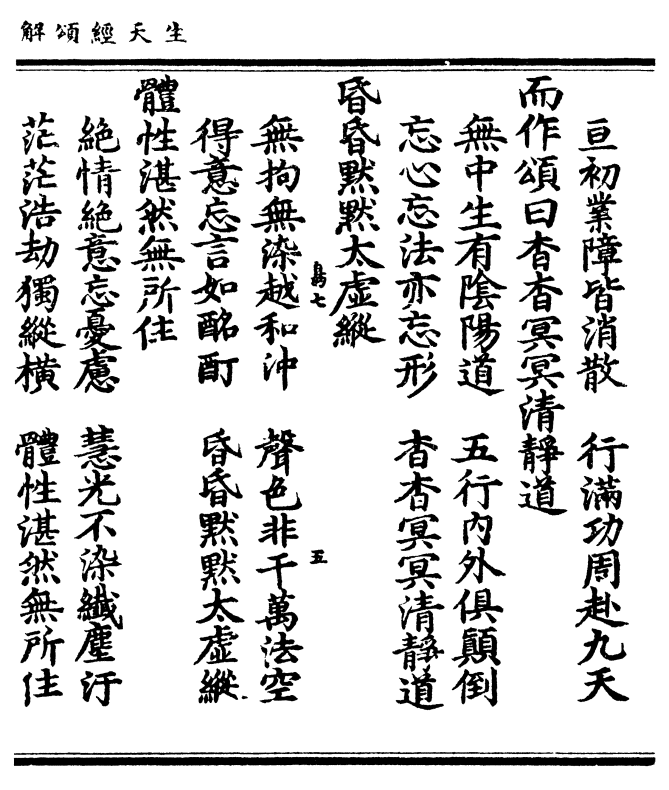 生天經頌解
亘初業障皆消散　行滿功周赴九天
而作頌曰杳杳冥冥清靜道
無中生有陰陽道　五行內外俱顛倒
忘心忘法亦忘形　杳杳冥冥清靜道
昏昏默默太虛縱
鳥七　五
無拘無染越和沖　聲色非干萬法空
得意忘言如酩酊　昏昏默默太虛縱
體性湛然無所住
絕情絕意忘憂慮　慧光不染纖塵汙
茫茫浩劫獨縱橫　體性湛然無所住